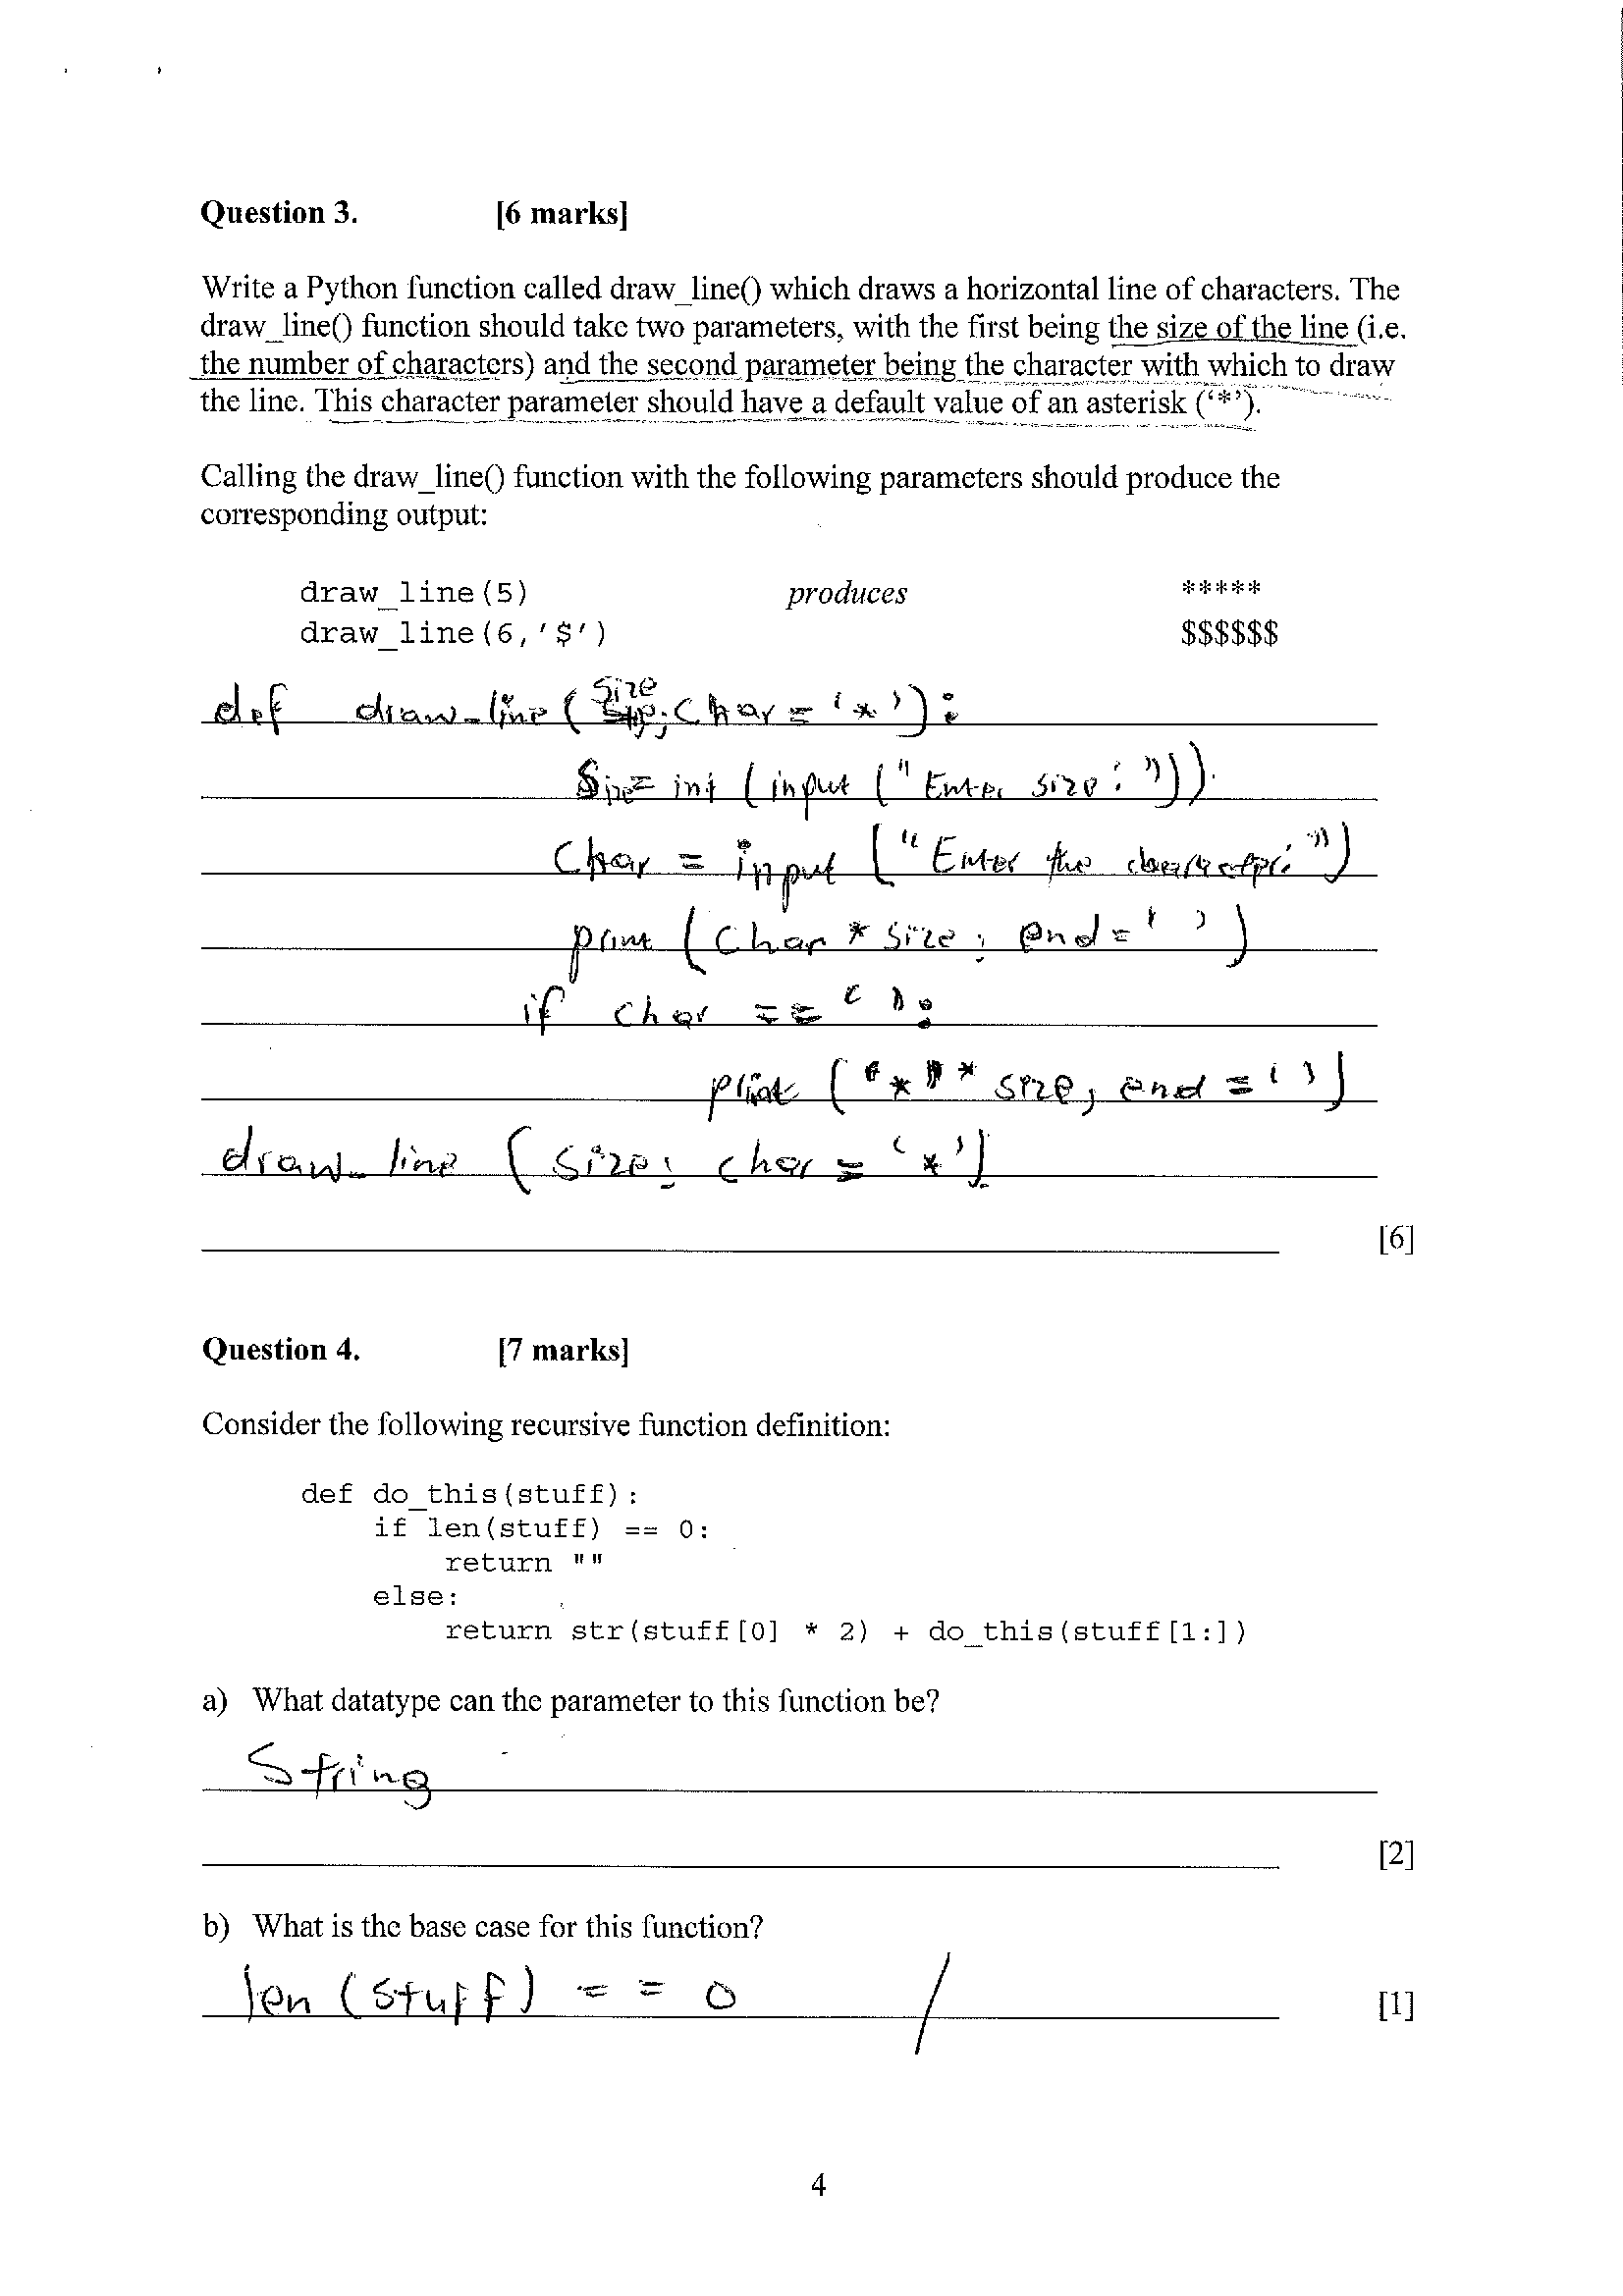 Question 3. [6 marks]
Write a Python function called draw_line() which draws a horizontal line of characters. The
draw_line() function should take two parameters, with the first being the size of the line (i.e.
the number of characters) and the second parameter being the character with which to draw
the line. This character parameter should have a default value of an asterisk (‘*’).
Calling the draw_line() function with the following parameters should produce the
corresponding output:
draw_line(5) produces *****
draw_line(6,'$') $$$$$$
size
def draw_line( , char = '*'):
Size = int (input ("Enter size: "))
Char = input ("Enter the character: ")
print (char * size, end = ' ')
if char == ' ':
print ('*' * size, end = ' ')
draw_line (size, char = '*')
[6]
Question 4. [7 marks]
Consider the following recursive function definition:
def do_this(stuff):
if len(stuff) == 0:
return ""
else:
return str(stuff[0] * 2) + do_this(stuff[1:])
a) What datatype can the parameter to this function be?
String
[2]
b) What is the base case for this function?
len (stuff) == 0 / [1]
4